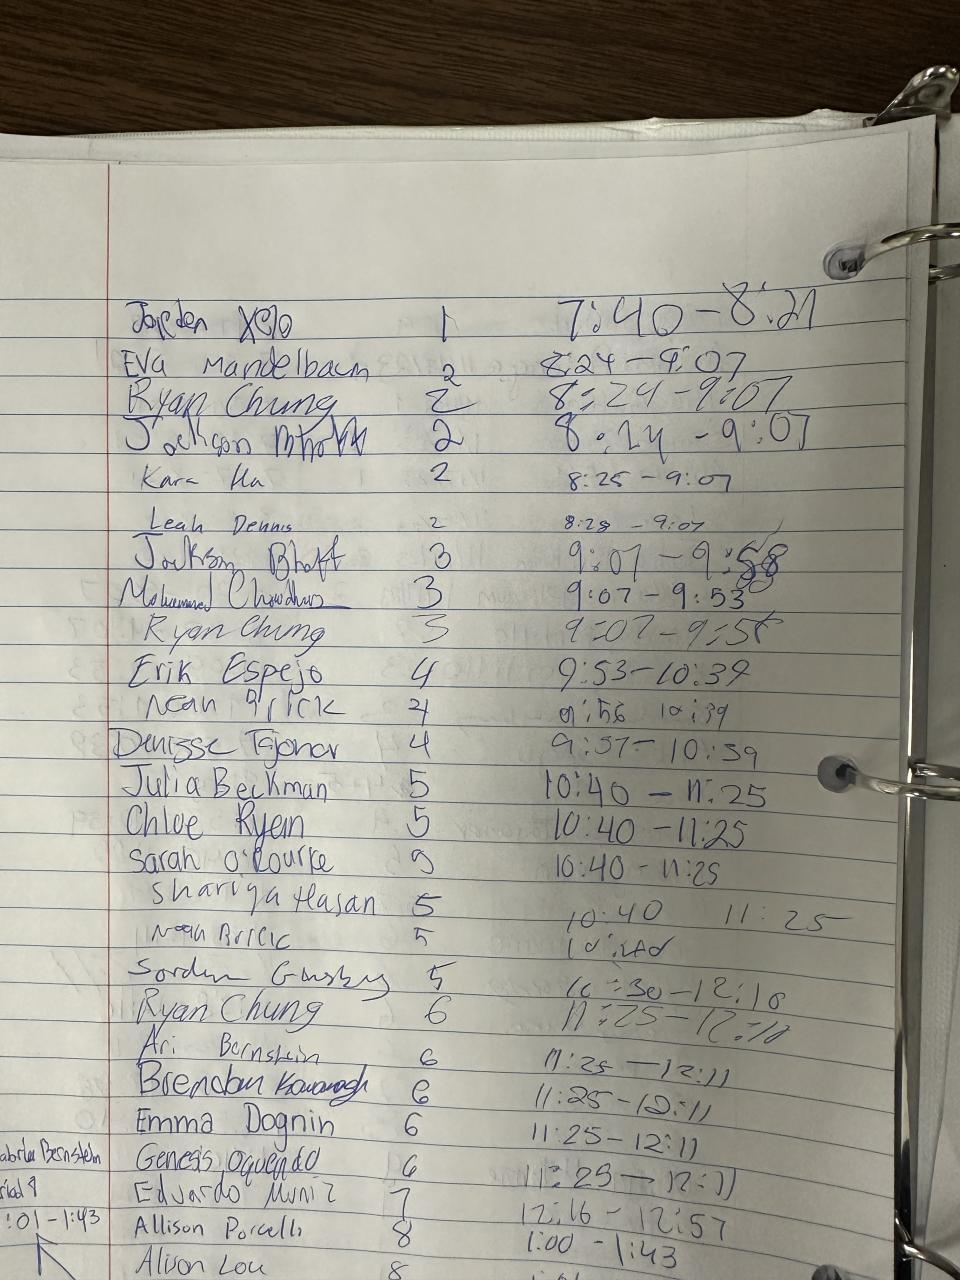 Jorden Xelo 1 7:40 - 8:21
Eva Mandelbaum 2 8:24 - 9:07
Ryan Chung 2 8:24 - 9:07
Jackson Bhatt 2 8:24 - 9:07
Kara Ha 2 8:25 - 9:07
Leah Dennis 2 8:28 - 9:07
Jackson Bhatt 3 9:07 - 9:58
Mohammed Chowdhury 3 9:07 - 9:53
Ryan Chung 3 9:07 - 9:58
Erik Espejo 4 9:53 - 10:39
4 9:56 10:39
Denisse 4 9:57 - 10:39
Julia Beckman 5 10:40 - 11:25
Chloe Ryan 5 10:40 - 11:25
Sarah O'Rourke 5 10:40 - 11:25
Shariya Hasan 5 10:40 11:25
5 10:40
5 - 12:10
Ryan Chung 6 11:25 - 12:10
Ari Bernstein 6 11:25 - 12:11
Brendan Kavanagh 6 11:25 - 12:11
Emma Dognin 6 11:25 - 12:11
Genesis Oquendo 6 11:25 - 12:11
Eduardo Muniz 7 12:16 - 12:57
Allison Porcelli 8 1:00 - 1:43
Alison Lou 8
Bernstein
:01 - 1:43